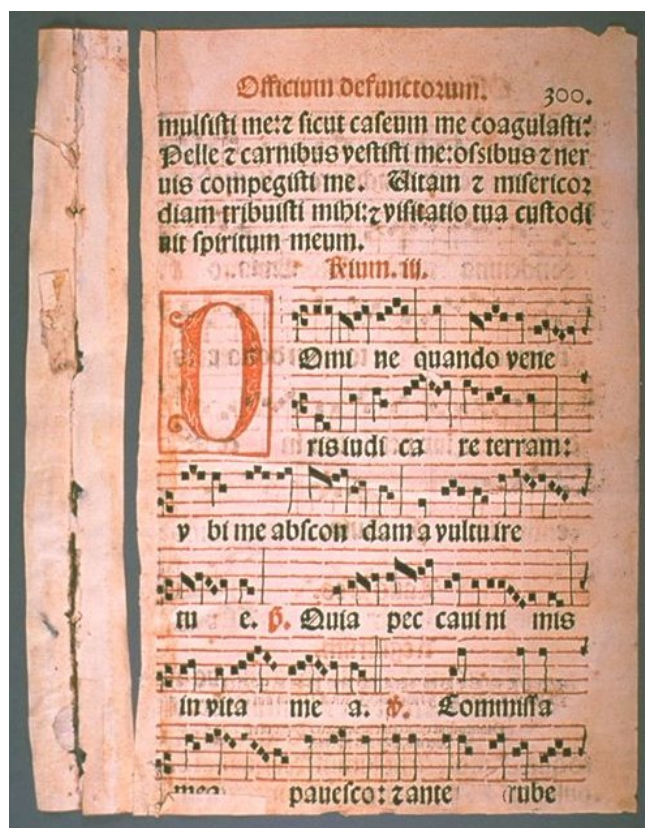 Officium defunctorum. 300.
mulsisti me: ⁊ sicut caseum me coagulasti:
Pelle ⁊ carnibus vestisti me: ossibus ⁊ ner
uis compegisti me. Uitam ⁊ misericoꝛ
diam tribuisti mihi: ⁊ visitatio tua custodi
uit spiritum meum.
℟ium. iij.
DOmi ne quando vene
ris iudi ca re terram:
v bi me abscon dam a vultu ire
tu e. ꝟ. Quia pec caui ni mis
in vita me a. ꝟ. Commissa
mea pauesco: ⁊ ante rube